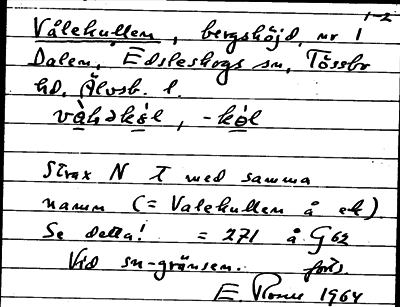 1-2
Vålekullen, bergshöjd, nr 1
Dalen, Edsleskogs sn, Tössbo
hd, Älvsb. l.
vàləkól, -kól
Strax N I med samma
namn (= Valekullen å ek)
Se detta! = 271 å G62
Vid sn-gränsen. forts.
E. 1964